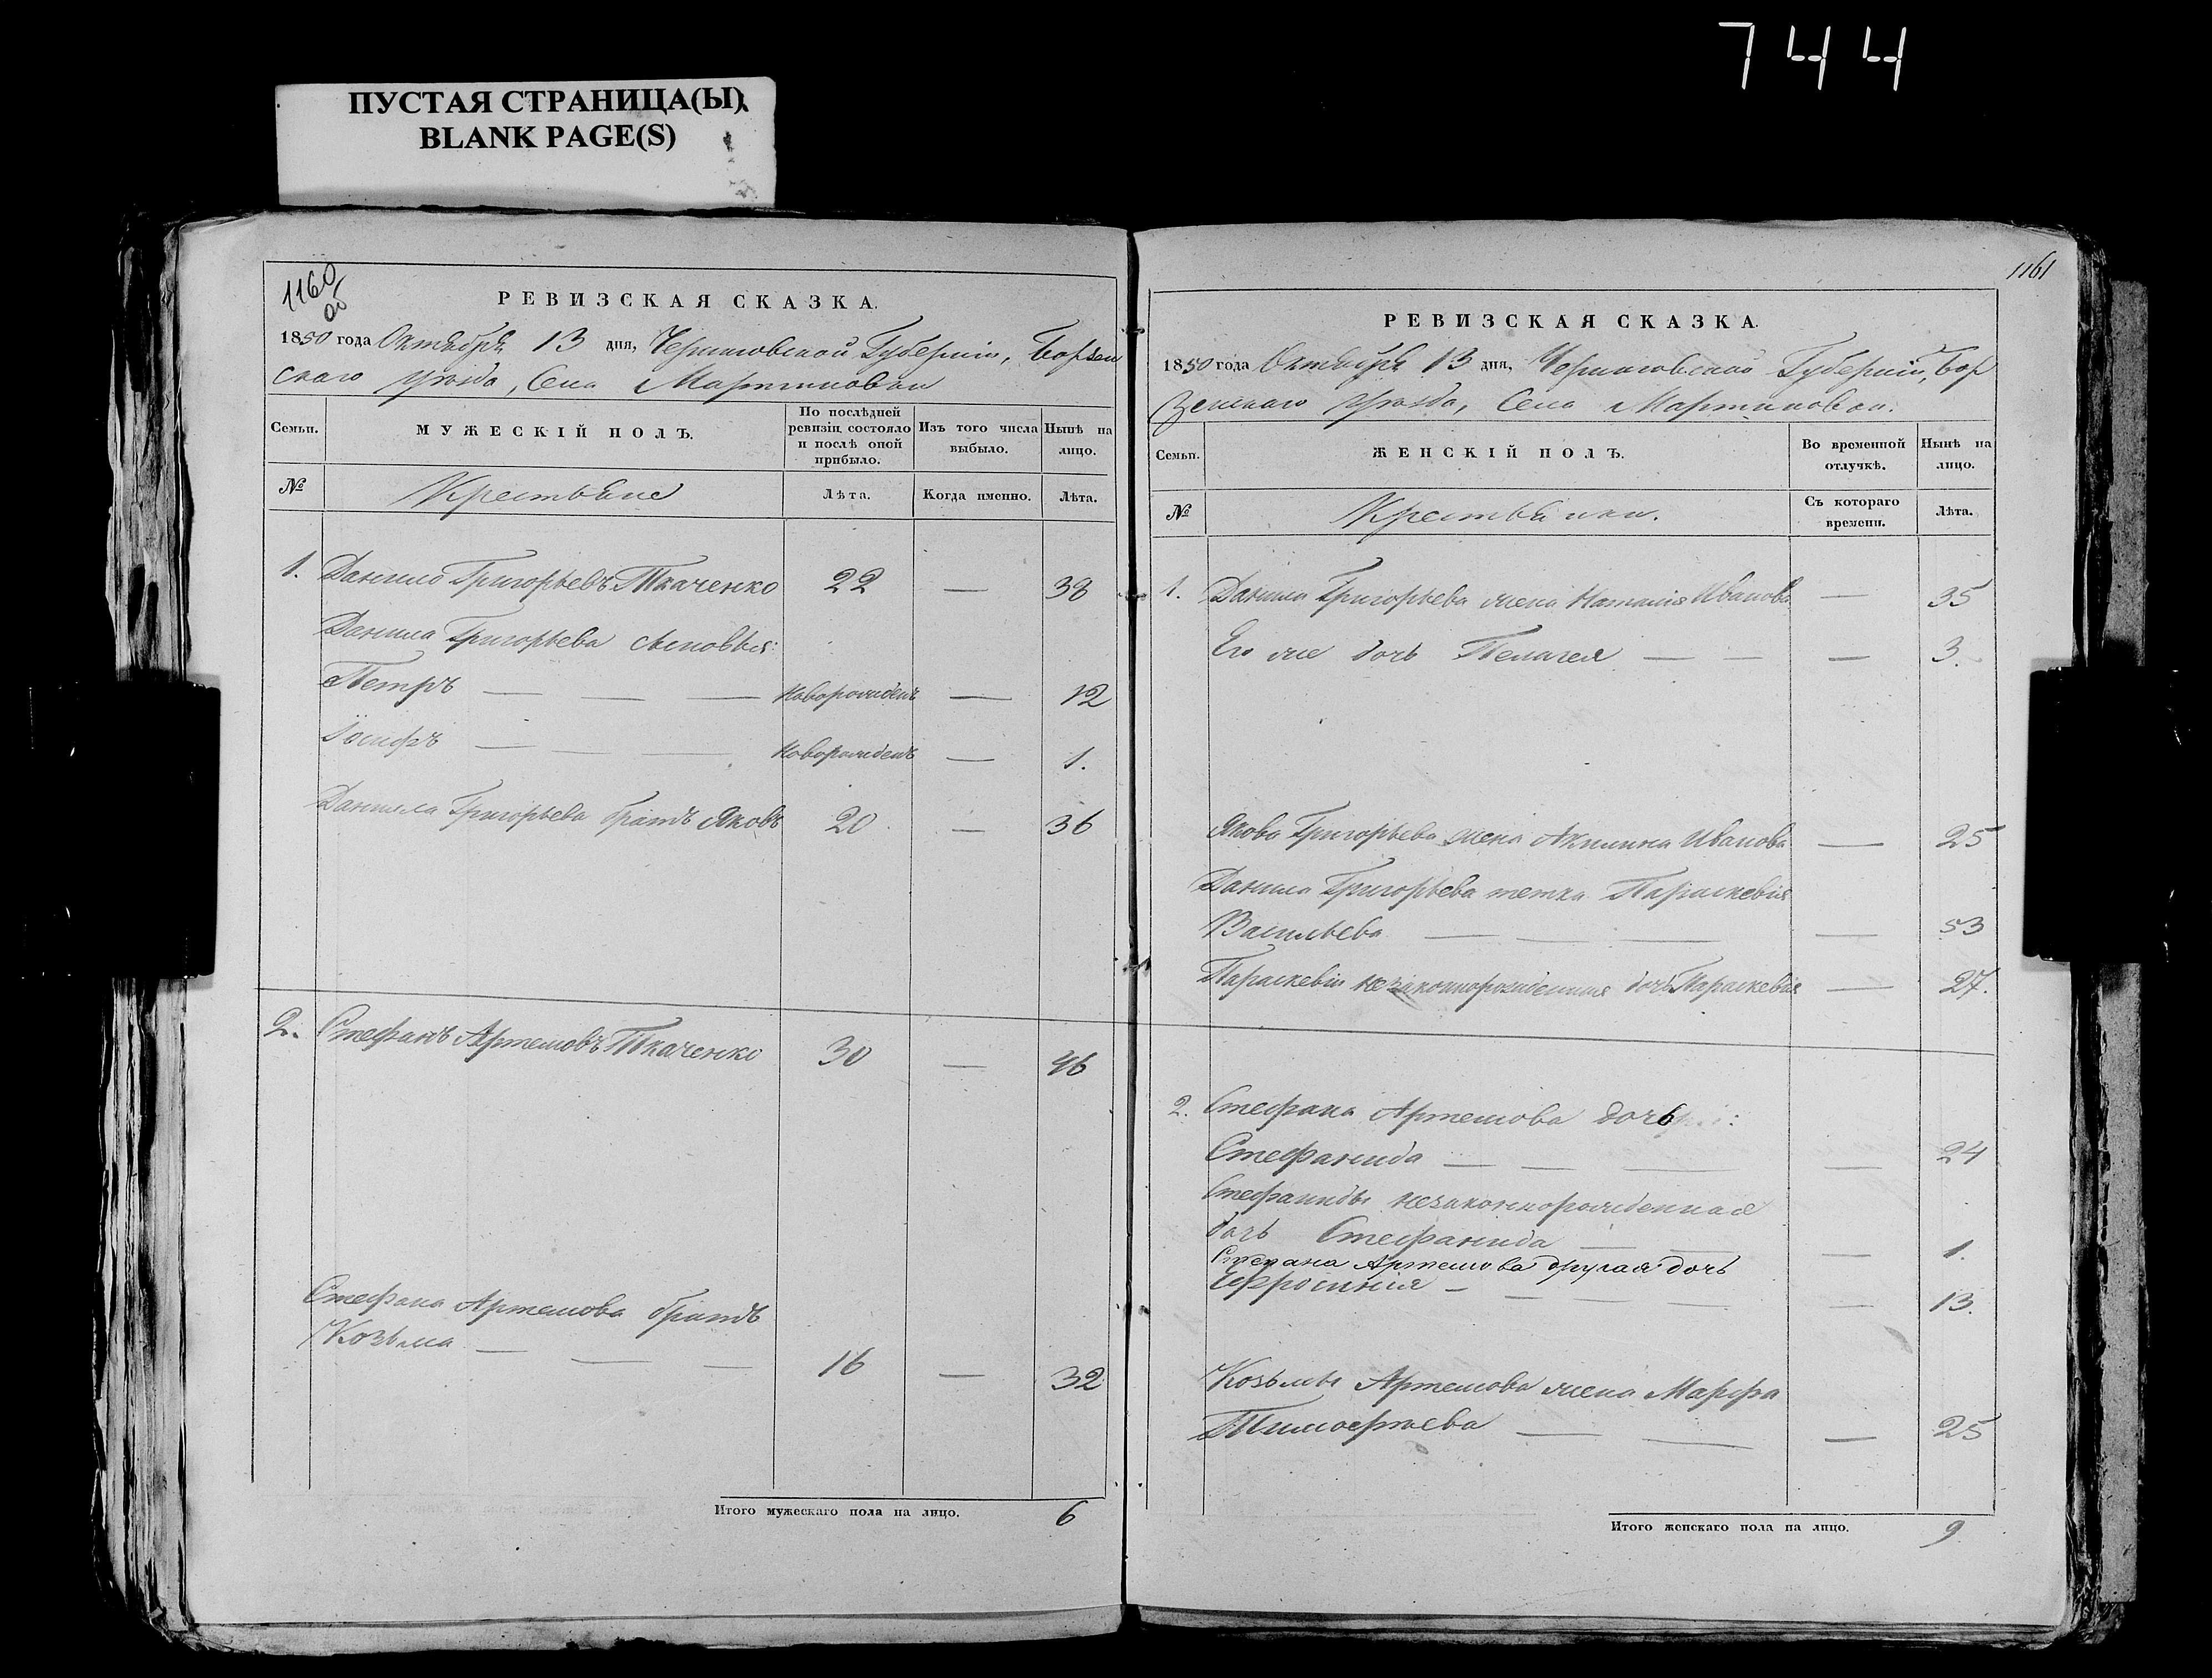 744
ПУСТАЯ СТРАНИЦА(Ы)
BLANK PAGE(S)
1160
об
РЕВИЗСКАЯ СКАЗКА.
1850 года Октября 13 дня, Черниговской Губерніи, Борзен
скаго уѣзда, Села Мартиновки
Семьи.
МУЖЕСКІЙ ПОЛЪ.
По послѣдней ревизіи состояло и послѣ оной прибыло.
Изъ того числа выбыло.
Нынѣ на лицо.
№
Крестьяне
Лѣта.
Когда именно.
Лѣта.
1. Данило Григорьевъ Ткаченко 22 — 38
Данила Григорьева сыновья:
Петръ — — — новорожденъ — 12
Іосифъ — — — новорожденъ — 1.
Данила Григорьева братъ Яковъ 20 — 36
2. Стефанъ Артемовъ Ткаченко 30 — 46
Стефана Артемова братъ
Козьма — — — 16 — 32
Итого мужескаго пола на лицо. 6
1161
РЕВИЗСКАЯ СКАЗКА.
1850 года Октября 13 дня, Черниговской Губерніи, Бор
зенскаго уѣзда, Села Мартиновки.
Семьи.
ЖЕНСКІЙ ПОЛЪ.
Во временной отлучкѣ.
Нынѣ на лицо.
№
Крестьянки.
Съ котораго времени.
Лѣта.
1. Данила Григорьева жена Наталія Иванова — 35
Его же дочь Пелагея — — — 3.
Якова Григорьева жена Акилина Иванова — 25
Данила Григорьева тетка Параскевія
Васильева — — — — 53
Параскевіи незаконнорожденная дочь Параскевія — 27.
2. Стефана Артемова дочь:
Стефанида — — — — 24
Стефаниды незаконнорожденная
дочь Стефанида — — — 1.
Стефана Артемова другая дочь
Ефросинія — — — — — 13.
Козьмы Артемова жена Марфа
Тимофѣева — — — 25
Итого женскаго пола на лицо. 9